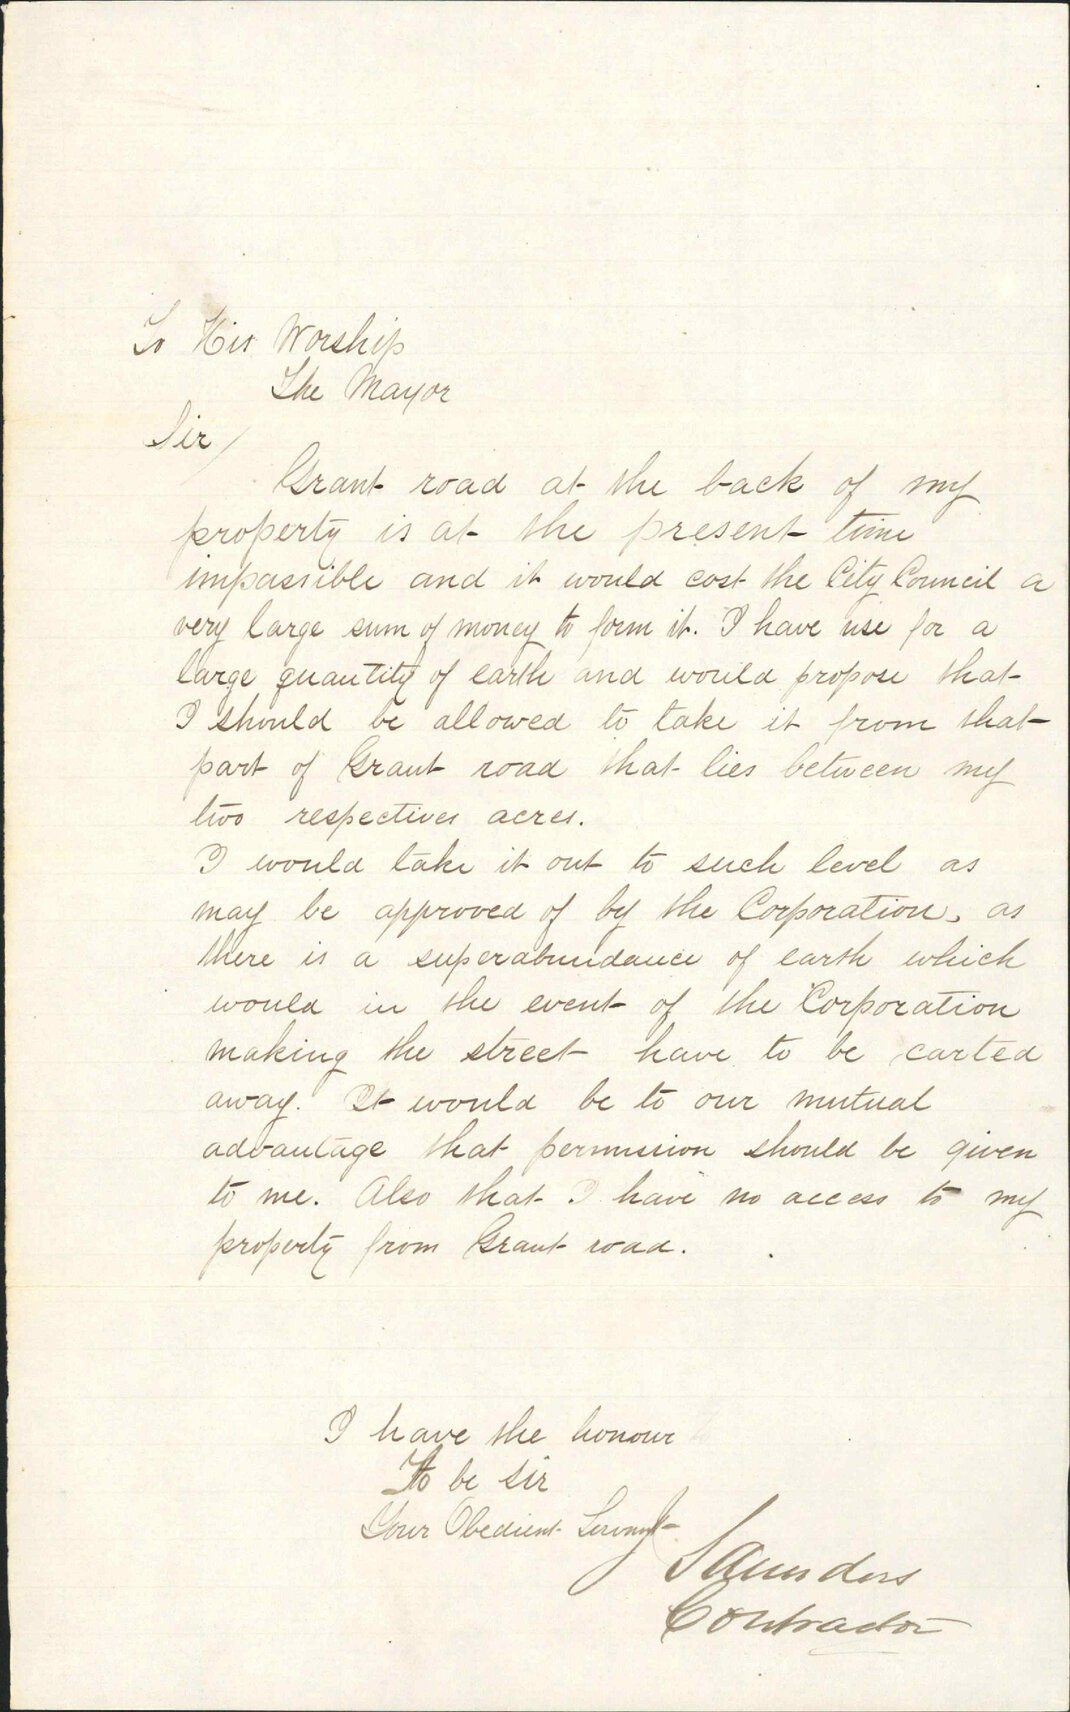 To His Worship
The Mayor
Sir/
Grant road at the back of my
property is at the present time
impassible and it would cost the City Council a
very large sum of money to form it. I have use for a
large quantity of earth and would propose that
I should be allowed to take it from that
part of Grant road that lies between my
two respectives acres.
I would take it out to such level as
may be approved of by the Corporation, as
there is a superabundance of earth which
would in the event of the Corporation
making the street have to be carted
away. It would be to our mutual
advantage that permission should be given
to me. Also that I have no access to my
property from Grant road.
I have the honour
To be Sir
Your Obedient Servant
J Saunders
Contractor